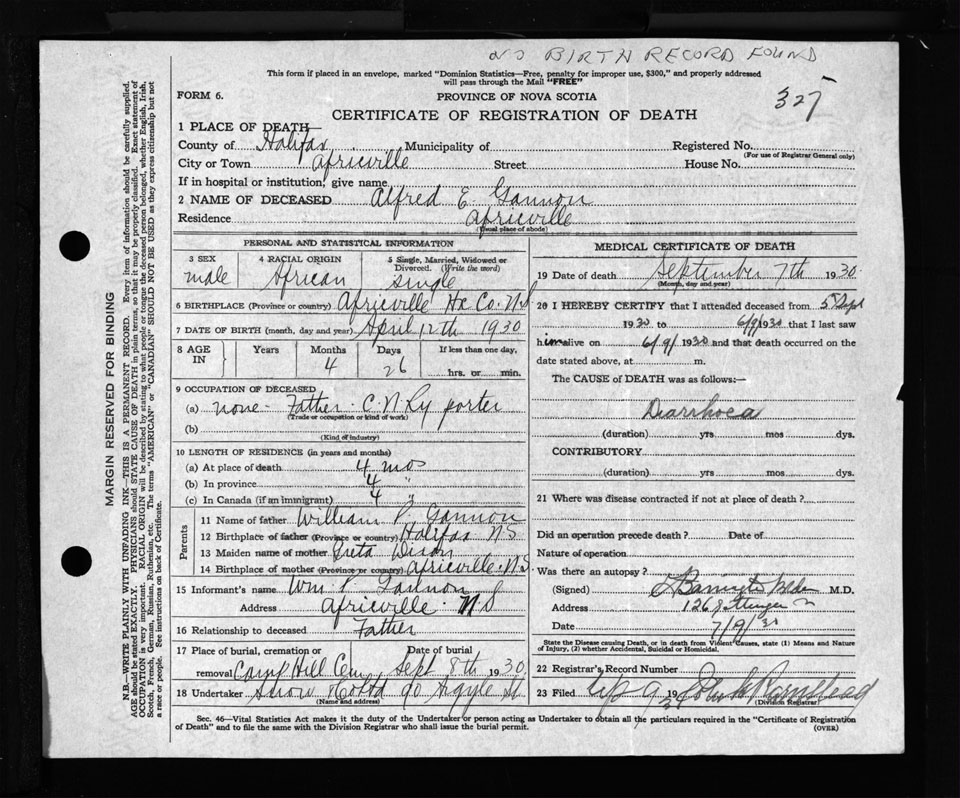 NO BIRTH RECORD FOUND
This form if placed in an envelope, marked "Dominion Statistics—Free, penalty for improper use, $300," and properly addressed
will pass through the Mail "FREE"
FORM 6.
PROVINCE OF NOVA SCOTIA
327
CERTIFICATE OF REGISTRATION OF DEATH
1 PLACE OF DEATH
County of Halifax Municipality of Registered No.
(For use of Registrar General only)
City or Town Africville Street House No.
If in hospital or institution, give name
2 NAME OF DECEASED Alfred E. Gannon
Residence Africville
(Usual place of abode)
PERSONAL AND STATISTICAL INFORMATION
3 SEX 4 RACIAL ORIGIN 5 Single, Married, Widowed or
Divorced. (Write the word)
male African single
6 BIRTHPLACE (Province or country) Africville Hx Co. N.S
7 DATE OF BIRTH (month, day and year) April 12th 1930
8 AGE IN Years Months Days If less than one day,
4 26 hrs. or min.
9 OCCUPATION OF DECEASED
(a) none - Father C.N.Ry porter
(Trade or occupation or kind of work)
(b)
(Kind of industry)
10 LENGTH OF RESIDENCE (in years and months)
(a) At place of death 4 mos
(b) In province 4 "
(c) In Canada (if an immigrant) 4
Parents
11 Name of father William P. Gannon
12 Birthplace of father (Province or country) Halifax NS
13 Maiden name of mother Dixon
14 Birthplace of mother (Province or country) Africville N.S
15 Informant's name Wm P. Gannon
Address Africville N S
16 Relationship to deceased Father
17 Place of burial, cremation or Date of burial
removal Camp Hill Cem Sept 8th 1930
18 Undertaker Snow & Co Ltd 90 Argyle St
(Name and address)
MEDICAL CERTIFICATE OF DEATH
19 Date of death September 7th 1930
(Month, day and year)
20 I HEREBY CERTIFY that I attended deceased from 5th Sept
1930 to 6/9/1930 that I last saw
him alive on 6/9/ 1930 and that death occurred on the
date stated above, at m.
The CAUSE of DEATH was as follows:—
Diarrhoea
(duration) yrs mos dys.
CONTRIBUTORY
(duration) yrs mos dys.
21 Where was disease contracted if not at place of death?
Did an operation precede death? Date of
Nature of operation
Was there an autopsy?
(Signed) M.D.
Address 126
Date 7/9/30
State the Disease causing Death, or in death from Violent Causes, state (1) Means and Nature
of Injury, (2) whether Accidental, Suicidal or Homicidal.
22 Registrar's Record Number
23 Filed 9 19
(Division Registrar)
Sec. 46—Vital Statistics Act makes it the duty of the Undertaker or person acting as Undertaker to obtain all the particulars required in the "Certificate of Registration
of Death" and to file the same with the Division Registrar who shall issue the burial permit.
(OVER)
MARGIN RESERVED FOR BINDING
N.B.—WRITE PLAINLY WITH UNFADING INK—THIS IS A PERMANENT RECORD. Every item of information should be carefully supplied.
AGE should be stated EXACTLY. PHYSICIANS should STATE CAUSE OF DEATH in plain terms, so that it may be properly classified. Exact statement of
OCCUPATION is very important. RACIAL ORIGIN will be described by stating to what people or tongue the deceased person belonged, whether English, Irish,
Scotch, French, German, Russian, Ruthenian, etc. The terms "AMERICAN" or "CANADIAN" SHOULD NOT BE USED as they express citizenship but not
a race or people. See instructions on back of Certificate.